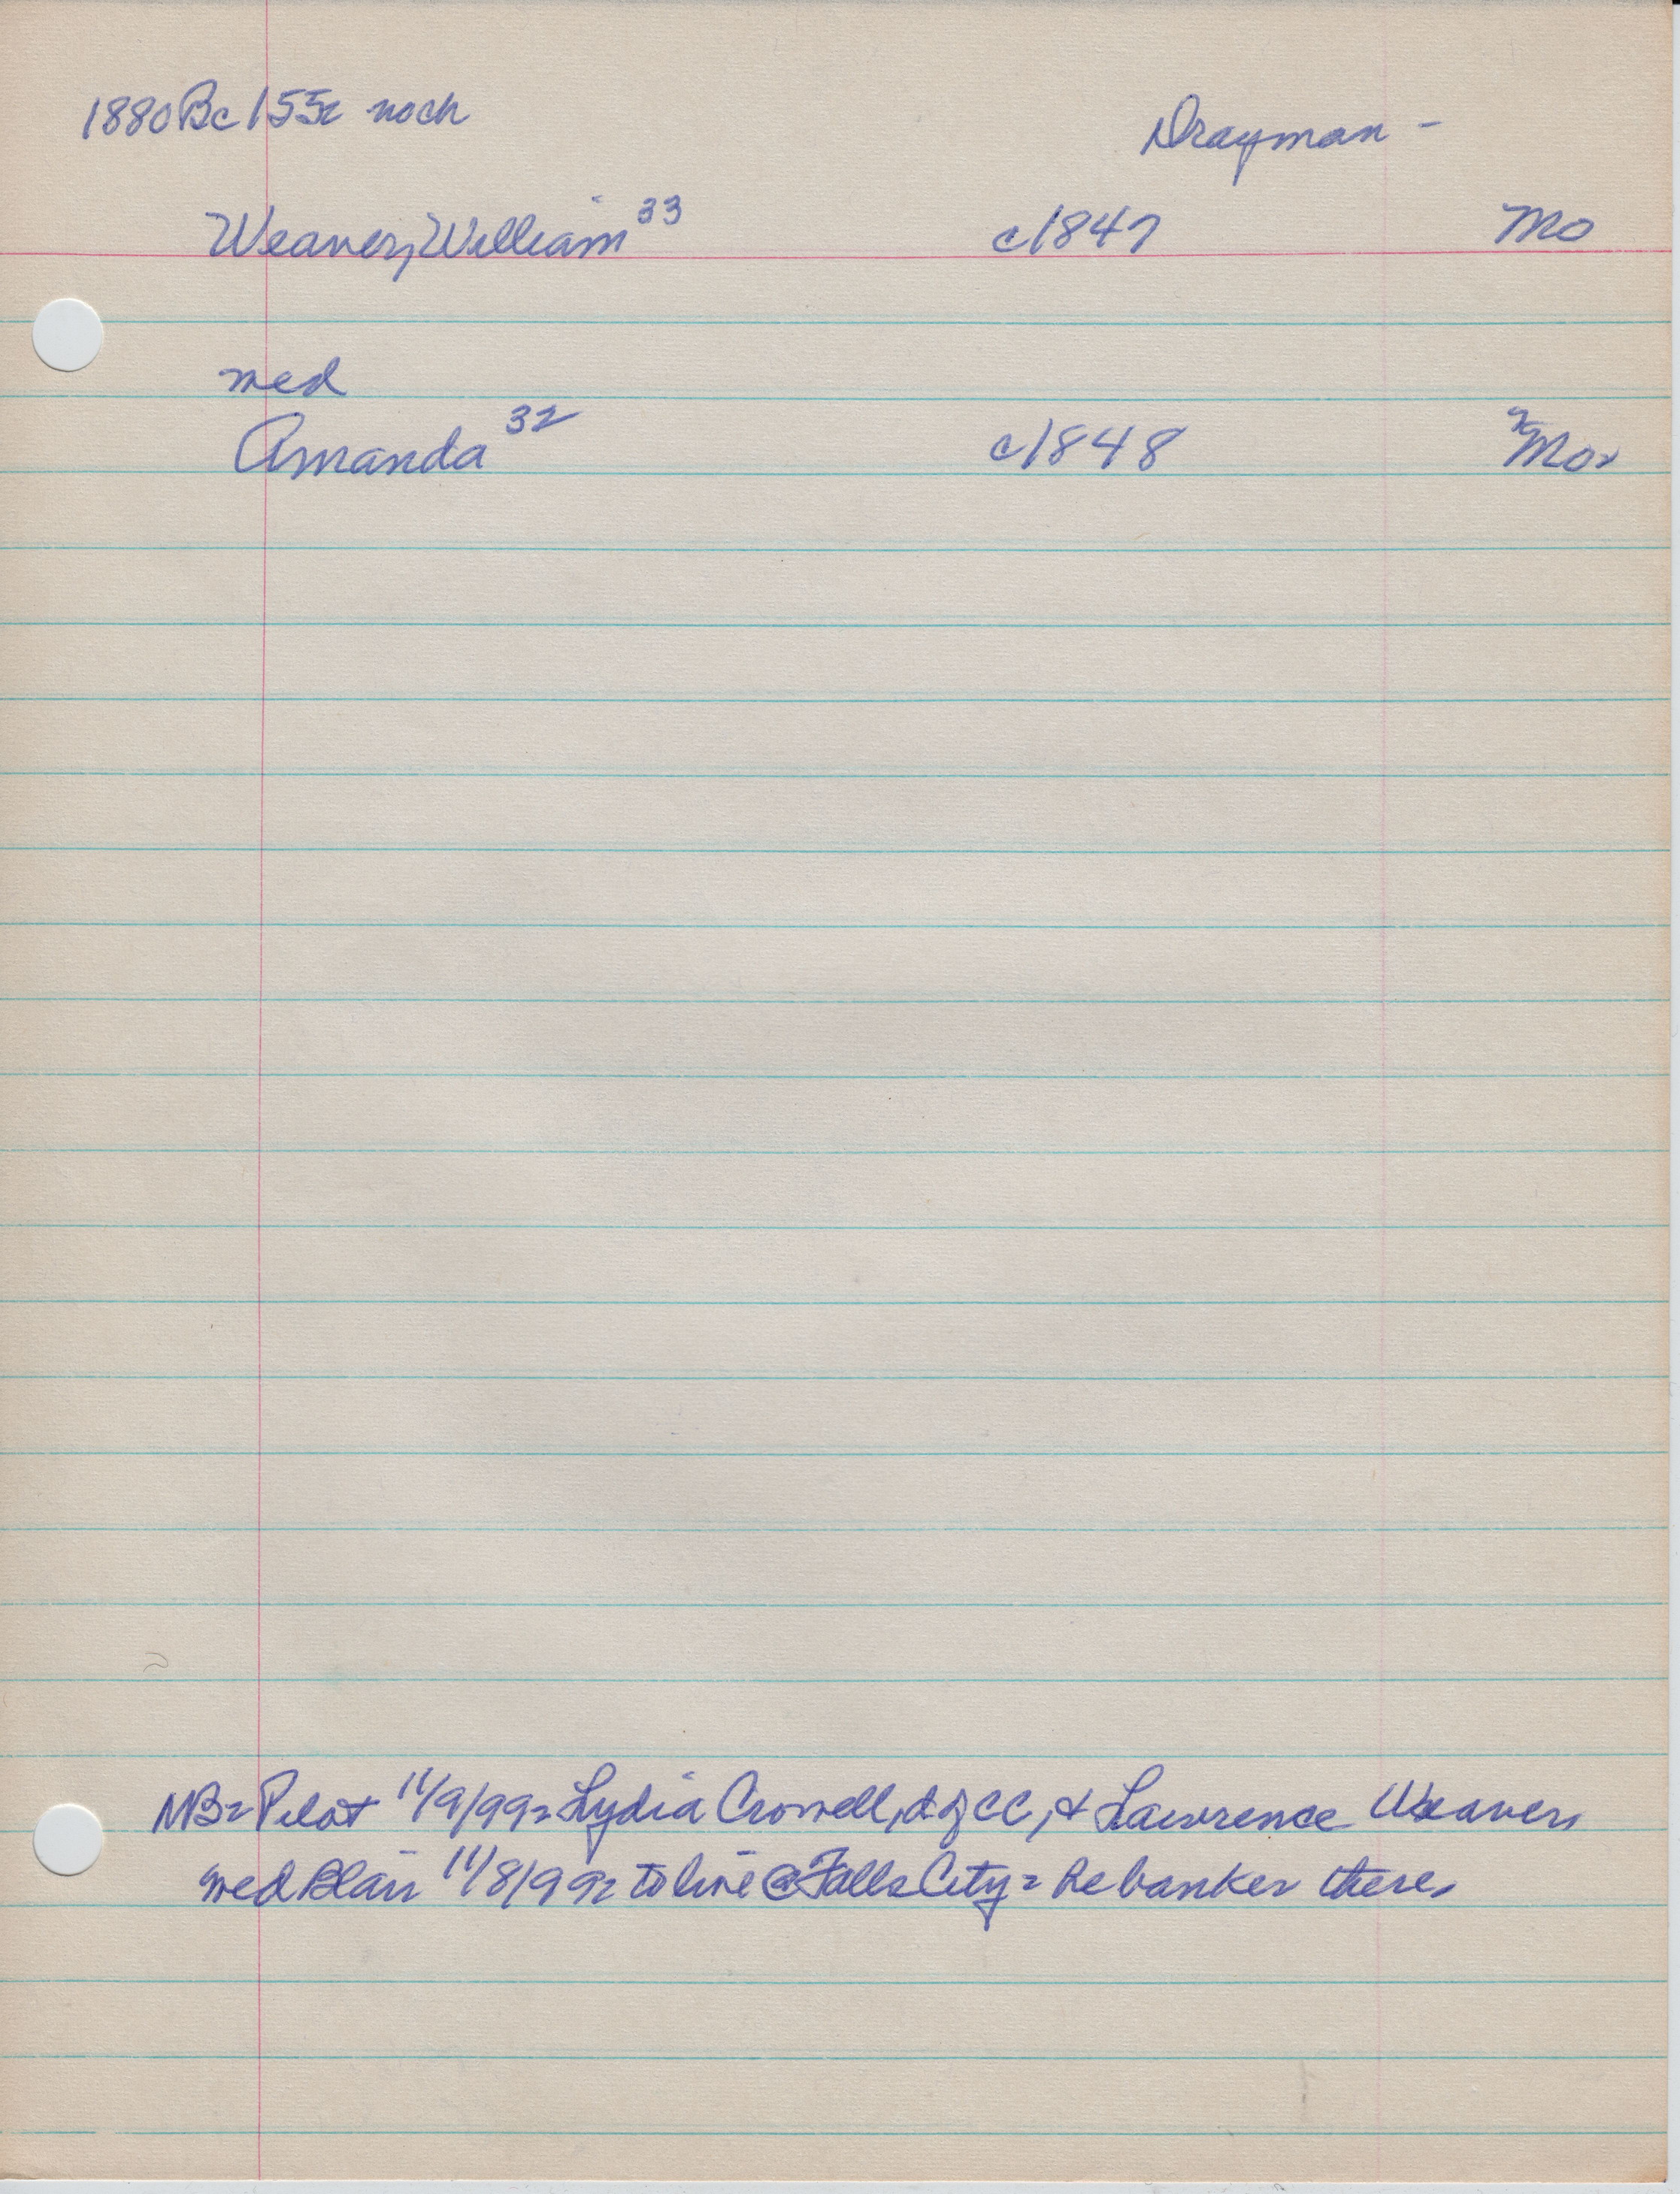 1880 Bc 155c noch
Drayman -
Weaver, William 33 c1847 Mo
med
Amanda 32 c1848 Mo
NB= Pilot 11/9/99= Lydia Crowell, d of CC, & Lawrence Weaver,
med Blair 11/8/99= to live @ Falls City= he banker there.